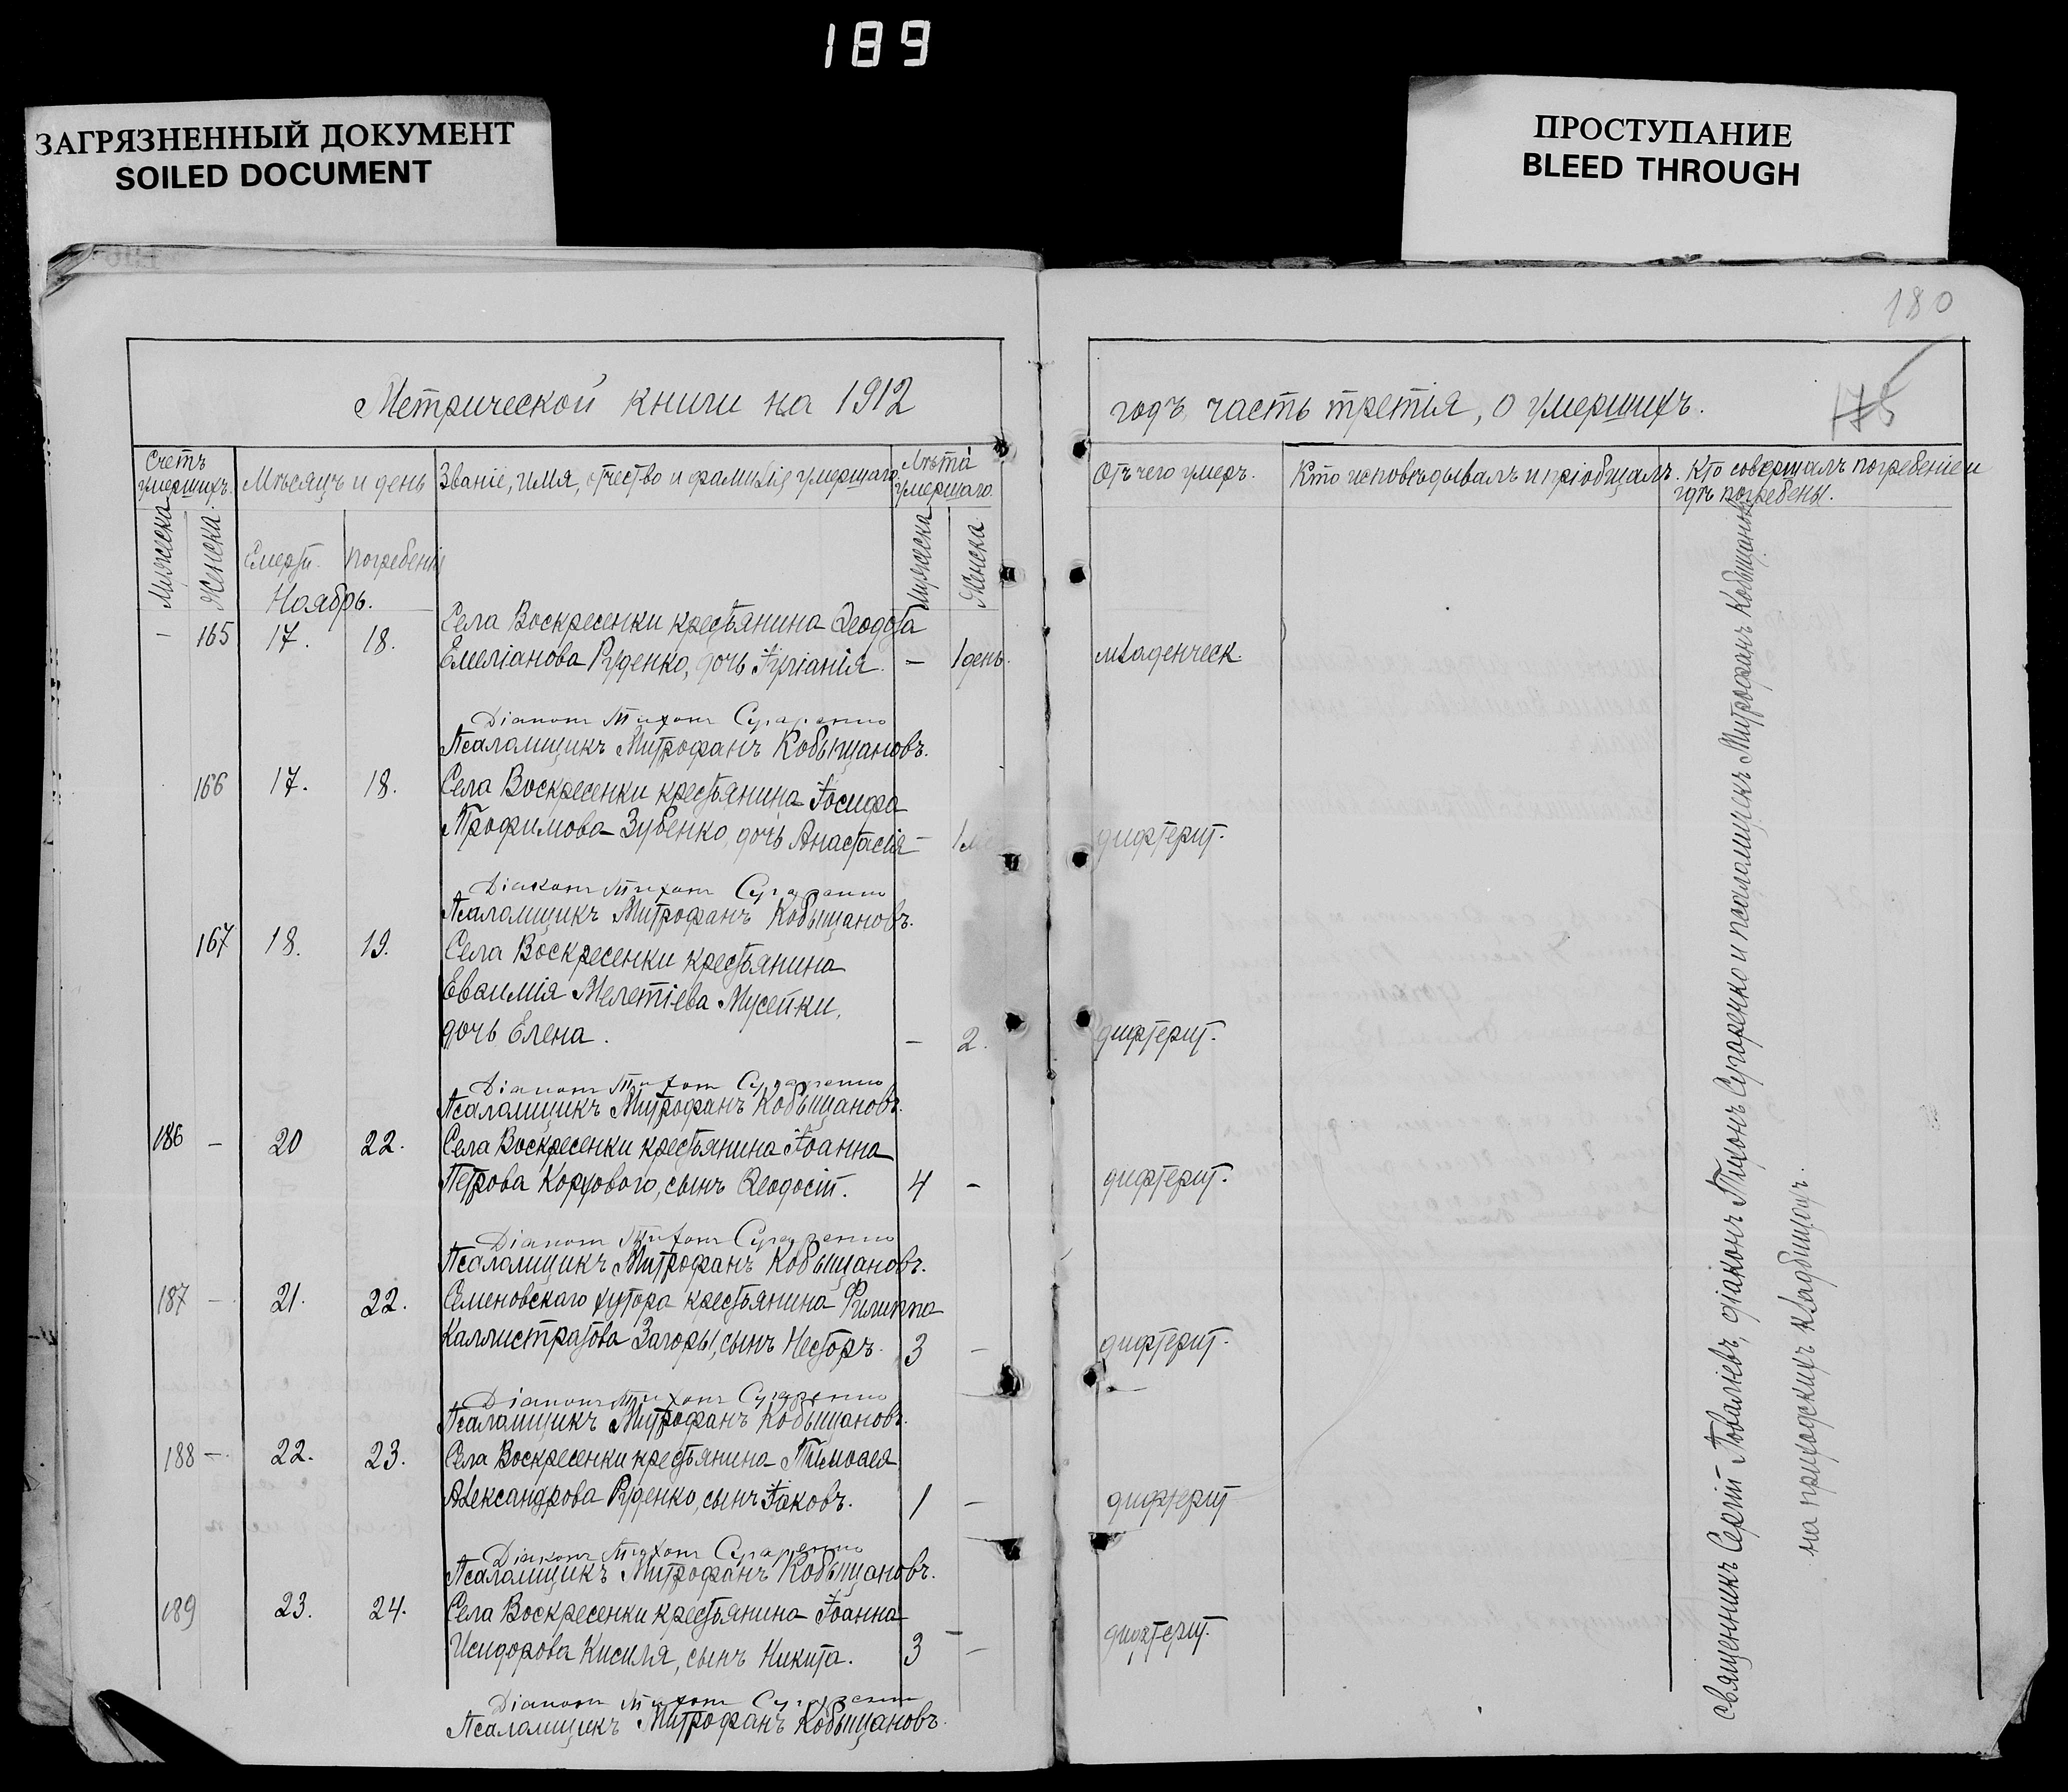 189
ЗАГРЯЗНЕННЫЙ ДОКУМЕНТ
SOILED DOCUMENT
ПРОСТУПАНИЕ
BLEED THROUGH
180
175
Метрической книги на 1912
годъ, часть третія, о умершихъ.
Счетъ умершихъ.
Мѣсяцъ и день
Званіе, имя, отчество и фамилія умершаго
Лѣта умершаго.
Отъ чего умеръ.
Кто исповѣдывалъ и пріобщалъ.
Кто совершалъ погребеніе и
гдѣ погребены.
Мужеска
Женска.
Смерти.
Погребенія
Мужеска
Женска.
Ноябрь.
Села Воскресенки крестьянина Ѳеодота
– 165 17. 18. Емеліанова Руденко, дочь Іуліанія. – 1 день. младенческ.
Діаконъ Тихонъ Сугоренко
Псаломщикъ Митрофанъ Кобыщановъ.
166 17. 18. Села Воскресенки крестьянина Іосифа
Трофимова Зубенко, дочь Анастасія – 1 дифтерит.
Діаконъ Тихонъ Сугоренко
Псаломщикъ Митрофанъ Кобыщановъ.
167 18. 19. Села Воскресенки крестьянина
Евѳимія Мелетіева Мусейки,
дочь Елена. – 2. дифтерит.
Діаконъ Тихонъ Сугоренко
Псаломщикъ Митрофанъ Кобыщановъ.
186 – 20 22. Села Воскресенки крестьянина Іоанна
Петрова Коржового, сынъ Ѳеодосій. 4 – дифтерит.
Діаконъ Тихонъ Сугоренко
Псаломщикъ Митрофанъ Кобыщановъ.
187 – 21. 22. Семеновскаго хутора крестьянина Филиппа
Каллистратова Загоры, сынъ Несторъ. 3 – дифтерит.
Діаконъ Тихонъ Сугоренко
Псаломщикъ Митрофанъ Кобыщановъ.
188 – 22. 23. Села Воскресенки крестьянина Тимоѳея
Александрова Руденко, сынъ Іаковъ. 1 – дифтерит
Діаконъ Тихонъ Сугоренко
Псаломщикъ Митрофанъ Кобыщановъ.
189 23. 24. Села Воскресенки крестьянина Іоанна
Исидорова Кисиля, сынъ Никита. 3 – дифтерит.
Діаконъ Тихонъ Сугоренко
Псаломщикъ Митрофанъ Кобыщановъ.
Священникъ Сергій діаконъ Тихонъ Сугоренко и псаломщикъ Митрофанъ Кобыщановъ
на приходскихъ кладбищахъ.